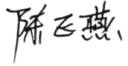 陈正燕